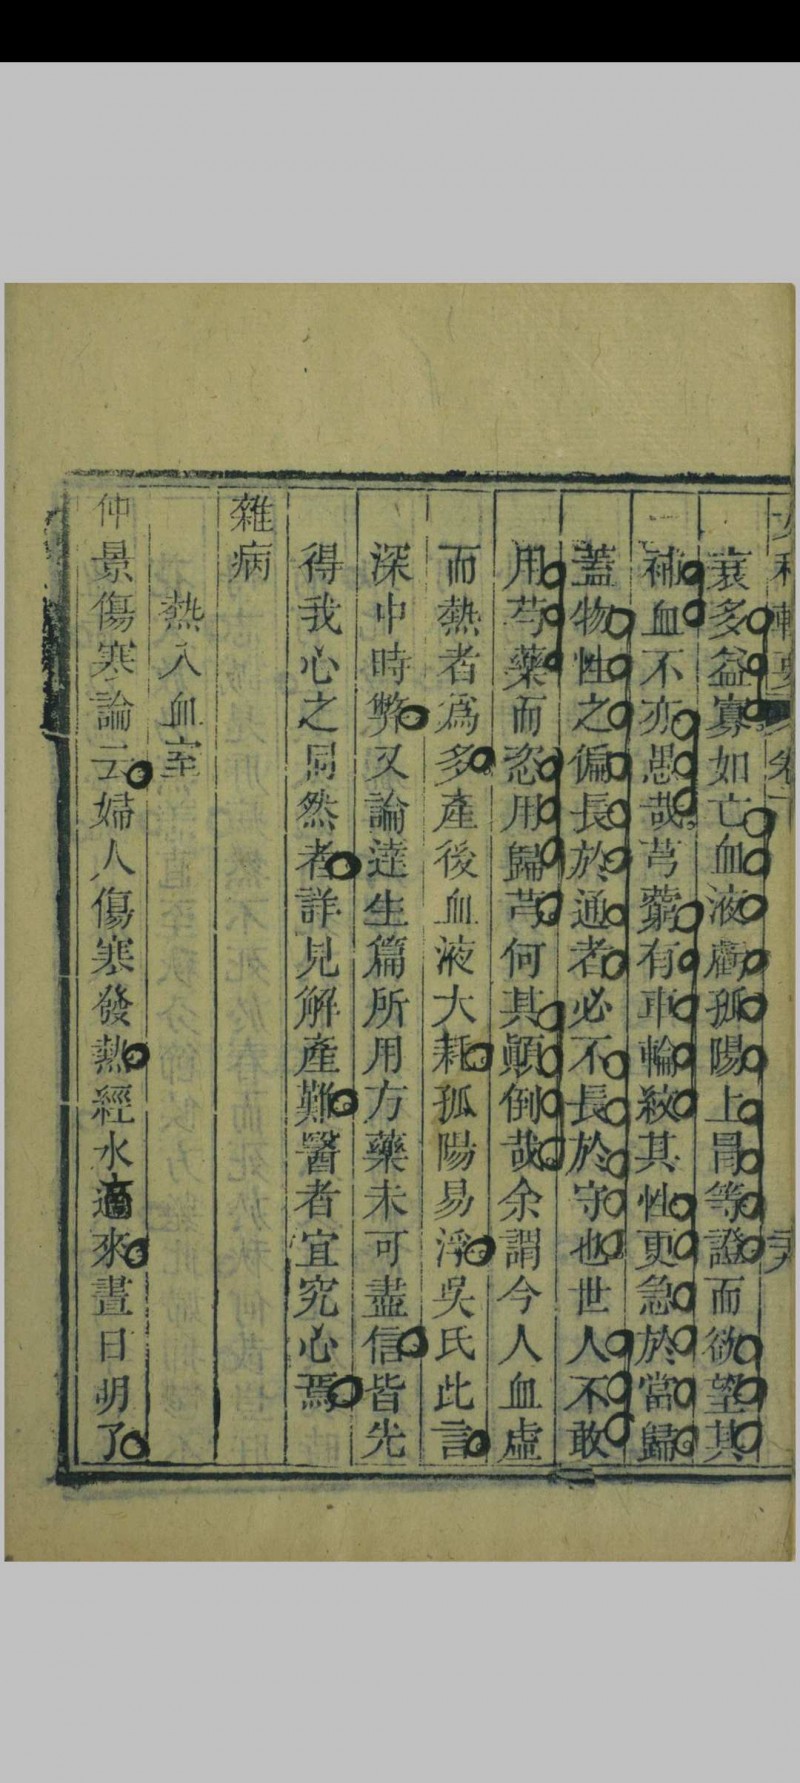 女科輯要 卷下 二八
裒多益寡如亡血液虧孤陽上冒等證而欲望其
補血不亦愚哉芎藭有車輪紋其性更急於當歸
蓋物性之偏長於通者必不長於守也世人不敢
用芍藥而恣用歸芎何其顛倒哉余謂今人血虛
而熱者爲多產後血液大耗孤陽易浮吳氏此言
深中時弊又論達生篇所用方藥未可盡信皆先
得我心之同然者詳見解產難醫者宜究心焉
雜病
熱入血室
仲景傷寒論云婦人傷寒發熱經水適來晝日明了